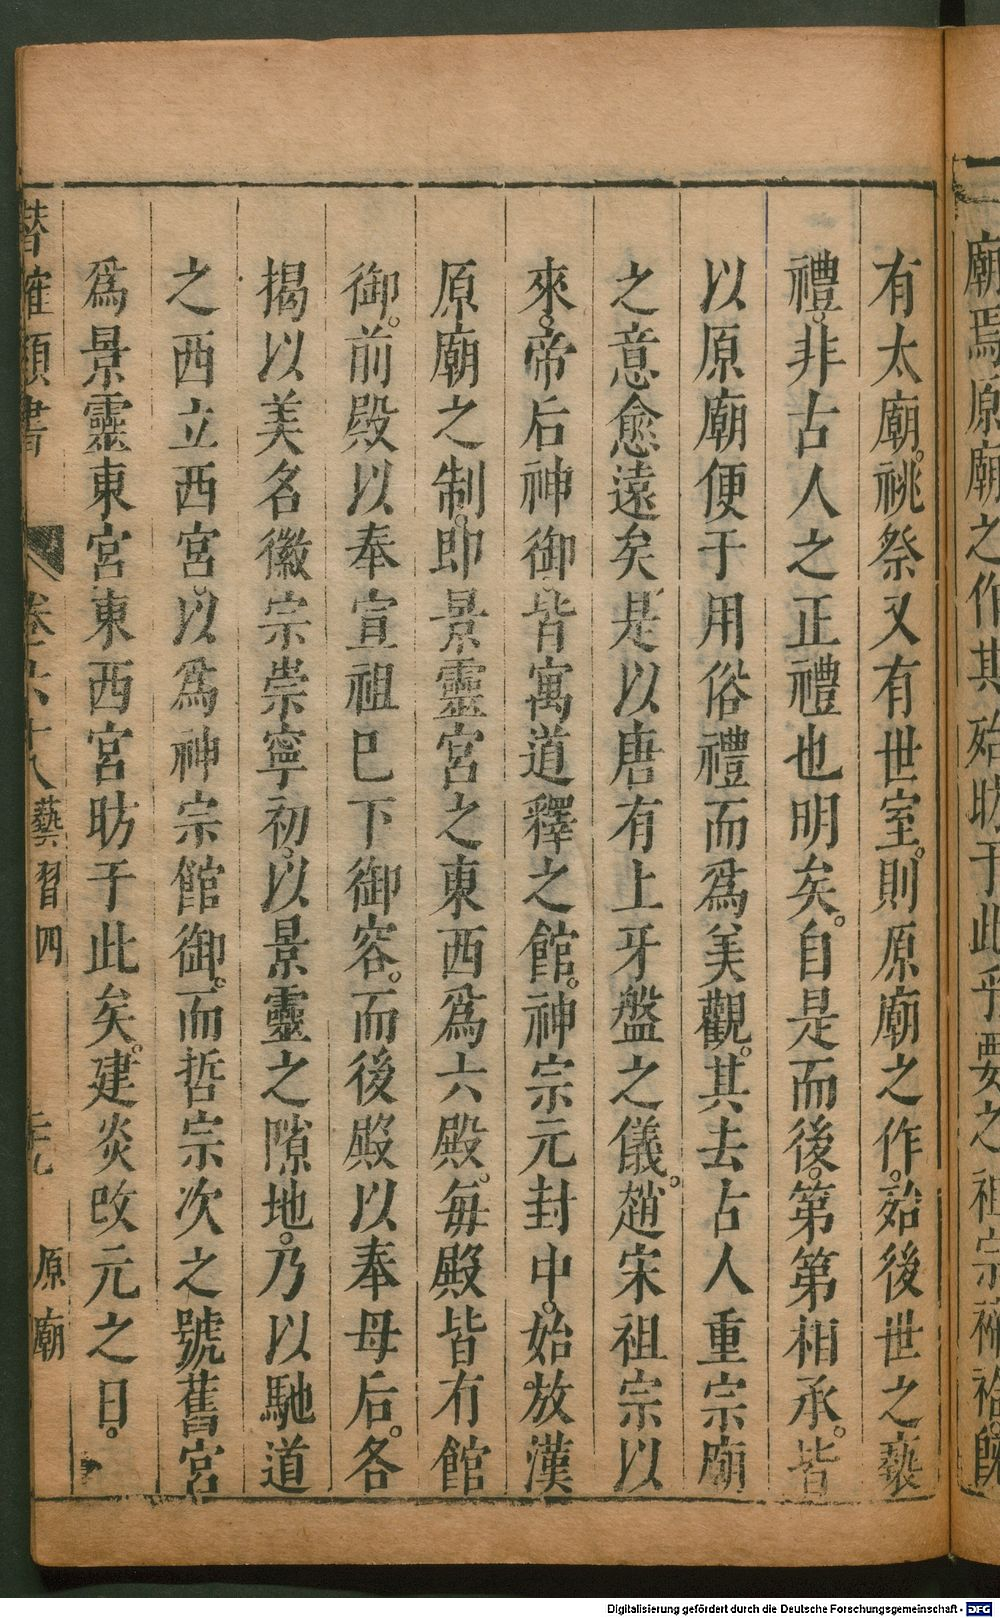 廟焉原廟之作其殆昉于此乎要之祖宗禘祫既
有太廟祧祭又有世室則原廟之作殆後世之褻
禮非古人之正禮也明矣自是而後第第相承皆
以原廟便于用俗禮而爲美觀其去古人重宗廟
之意愈遠矣是以唐有上牙盤之儀趙宋祖宗以
來帝后神御皆寓道釋之館神宗元封中始放漢
原廟之制即景靈宮之東西爲六殿每殿皆有館
御前殿以奉宣祖巳下御容而後殿以奉母后各
揭以美名徽宗崇寧初以景靈之隙地乃以馳道
之西立西宮以爲神宗館御而哲宗次之號舊宮
爲景靈東宮東西宮昉于此矣建炎改元之日
潛確類書 卷六十八 藝習四 原廟
Digitalisierung gefördert durch die Deutsche Forschungsgemeinschaft - DFG